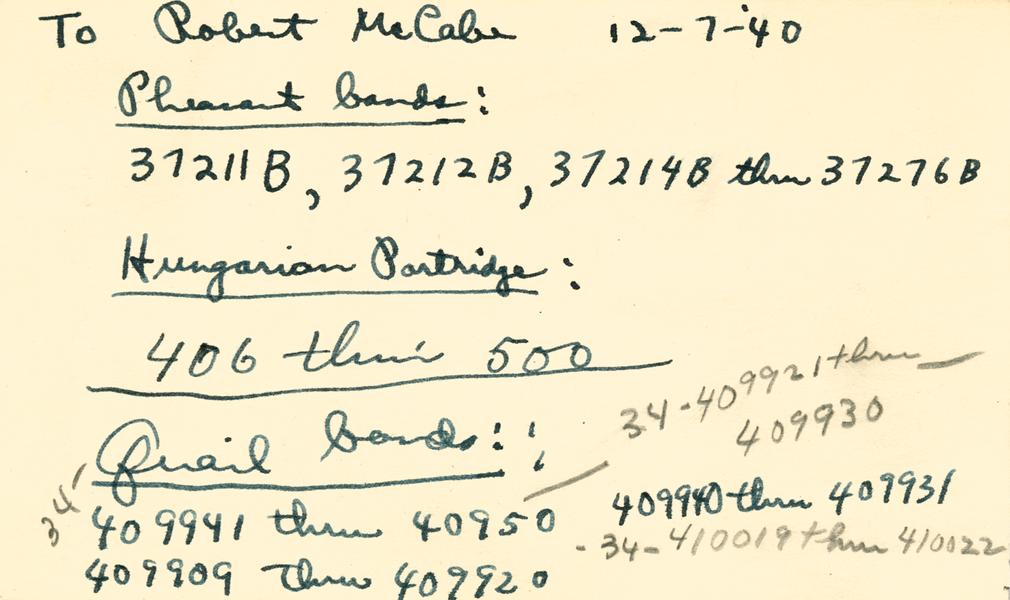 To Robert McCabe 12-7-40
Pheasant bands:
37211B, 37212B, 37214B thru 37276B
Hungarian Partridge:
406 thru 500
34-409921 thru
409930
Quail bands:
34-
409941 thru 40950
409940 thru 409931
-34-410019 thru 410022
409909 thru 409920